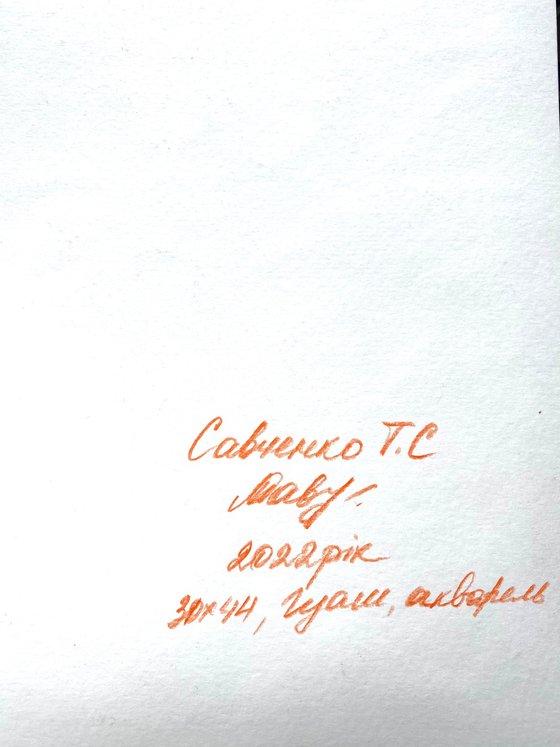 Савченко Т.С
2022 рік
30×44, гуаш, акварель